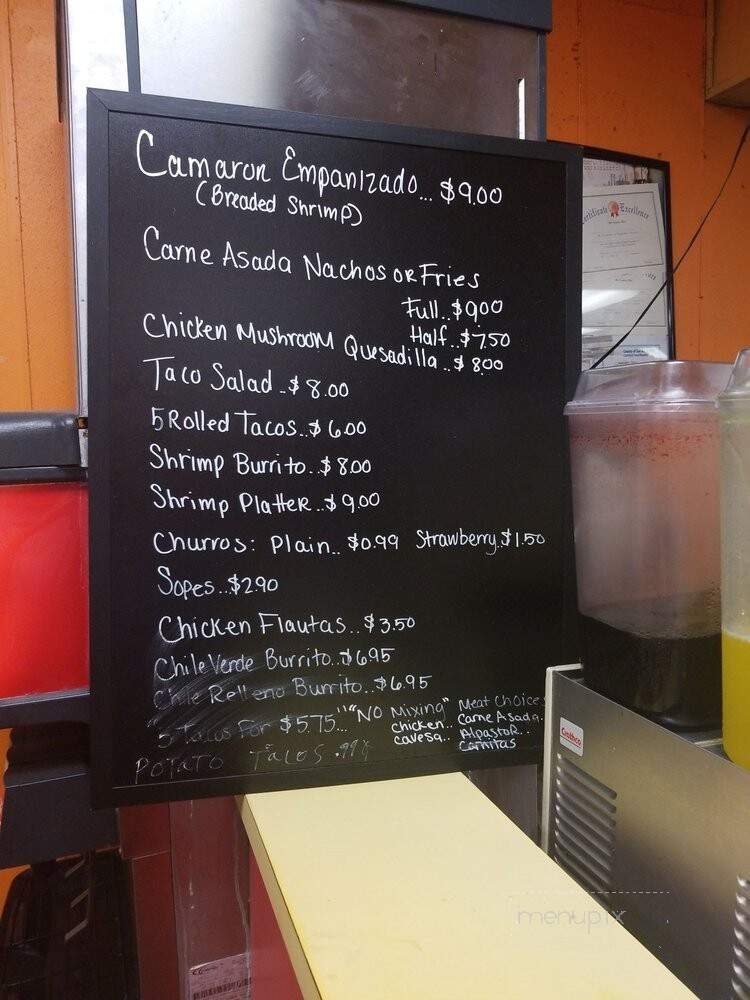 Camaron Empanizado... $9.00
(Breaded Shrimp)
Carne Asada Nachos or Fries
Full..$9.00
Half..$7.50
Chicken Mushroom Quesadilla..$8.00
Taco Salad..$8.00
5 Rolled Tacos..$6.00
Shrimp Burrito..$8.00
Shrimp Platter..$9.00
Churros: Plain.. $0.99 Strawberry..$1.50
Sopes..$2.90
Chicken Flautas..$3.50
Chile Verde Burrito..$6.95
Chile Relleno Burrito..$6.95
Tacos For $5.75... "No Mixing" Meat Choices
chicken.. Carne Asada..
cavesa.. Alpastor..
Carnitas
POTATO TACOS .99¢
Certificate Excellence
Crathco
menupix